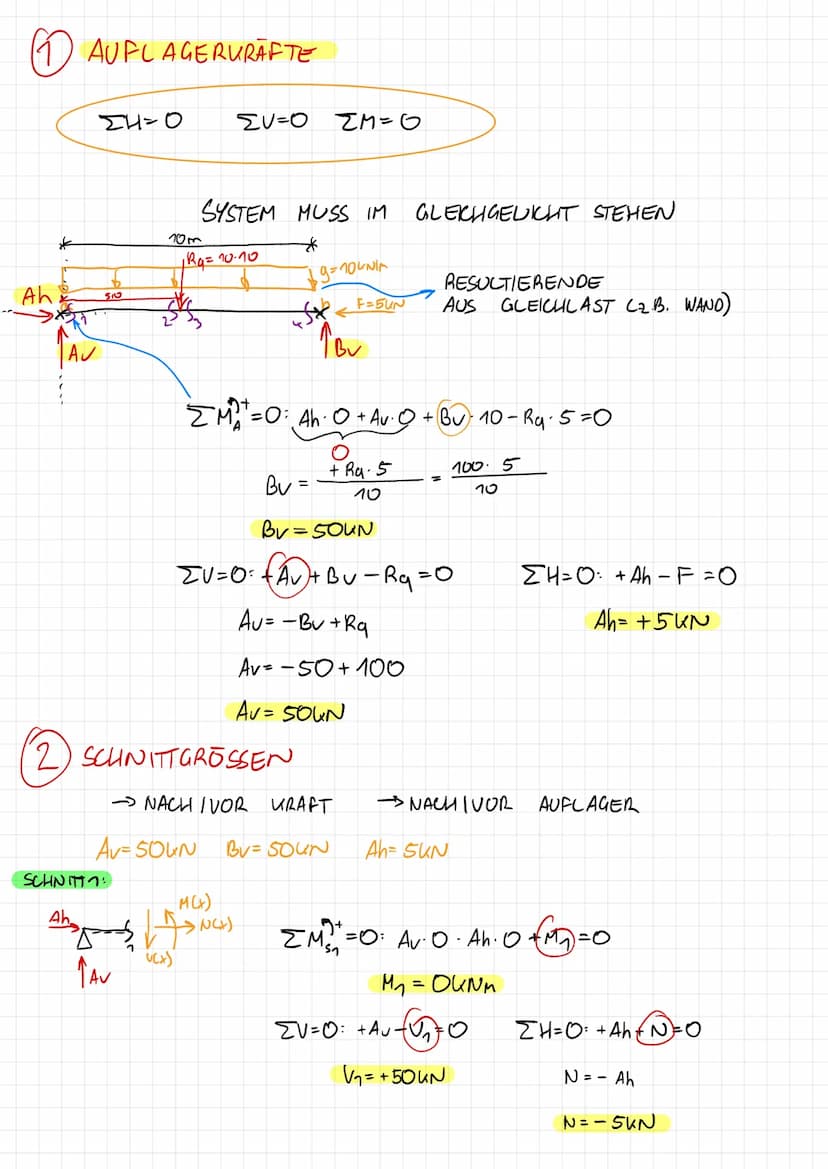 ① AUFLAGERKRÄFTE
ΣH=0 ΣV=0 ΣM=0
SYSTEM MUSS IM GLEICHGEWICHT STEHEN
10m
Rq= 10·10
q=10kN/m
Ah
5,0
F=5kN
1 2 3 4
Av
Bv
RESULTIERENDE
AUS GLEICHLAST (z.B. WAND)
ΣM_A⁺=0: Ah·0 + Av·0 + Bv·10 - Rq·5 =0
0
Bv = (+Rq·5)/10 = (100·5)/10
Bv = 50kN
ΣV=0: +Av + Bv - Rq =0 ΣH=0: +Ah - F =0
Av= -Bv +Rq Ah= +5kN
Av= -50+100
Av= 50kN
② SCHNITTGRÖSSEN
→ NACH/VOR KRAFT → NACH/VOR AUFLAGER
Av=50kN Bv=50kN Ah=5kN
SCHNITT 1:
Ah
Av
1
M(x)
N(x)
V(x)
ΣM_S1⁺=0: Av·0 · Ah·0 +M₁=0
M₁ = 0kNm
ΣV=0: +Av -V₁=0 ΣH=0: +Ah + N=0
V₁=+50kN N = - Ah
N = - 5kN